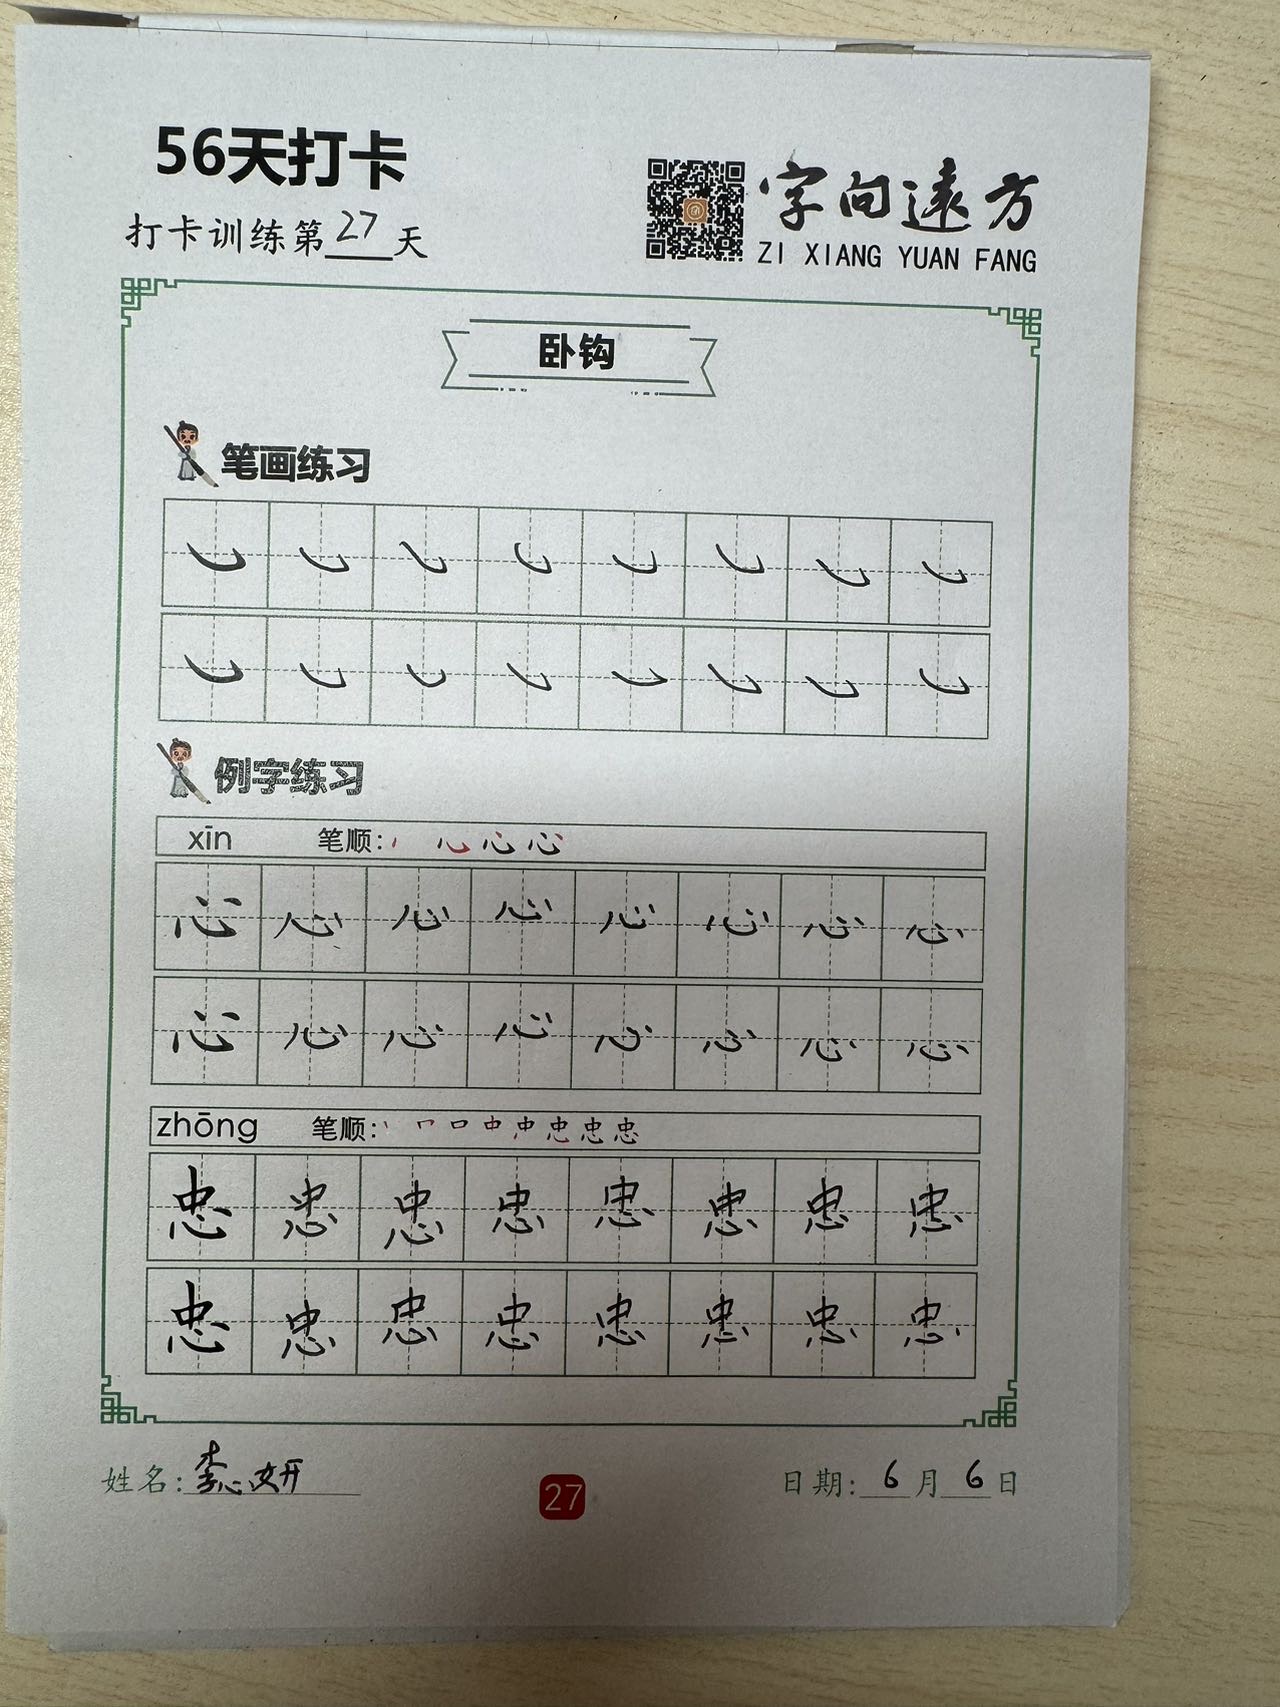 56天打卡
打卡训练第27天
字向遠方
ZI XIANG YUAN FANG
卧钩
笔画练习
㇃ ㇃ ㇃ ㇃ ㇃ ㇃ ㇃ ㇃
㇃ ㇃ ㇃ ㇃ ㇃ ㇃ ㇃ ㇃
例字练习
xīn 笔顺:
心 心 心 心 心 心 心 心
心 心 心 心 心 心 心 心
zhōng 笔顺:
忠 忠 忠 忠 忠 忠 忠 忠
忠 忠 忠 忠 忠 忠 忠 忠
姓名: 李心妍
27
日期: 6月6日